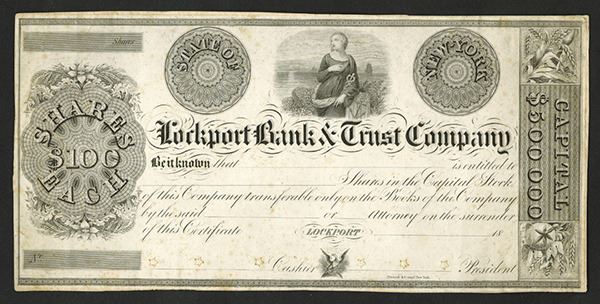 Shares
STATE OF
NEW-YORK
SHARES
$100
EACH
CAPITAL
$500,000
Lockport Bank & Trust Company
Be it known that is entitled to
Shares in the Capital Stock
of this Company transferable only on the Books of the Company
by the said or Attorney on the surrender
of this Certificate LOCKPORT 18
No.
Cashier President